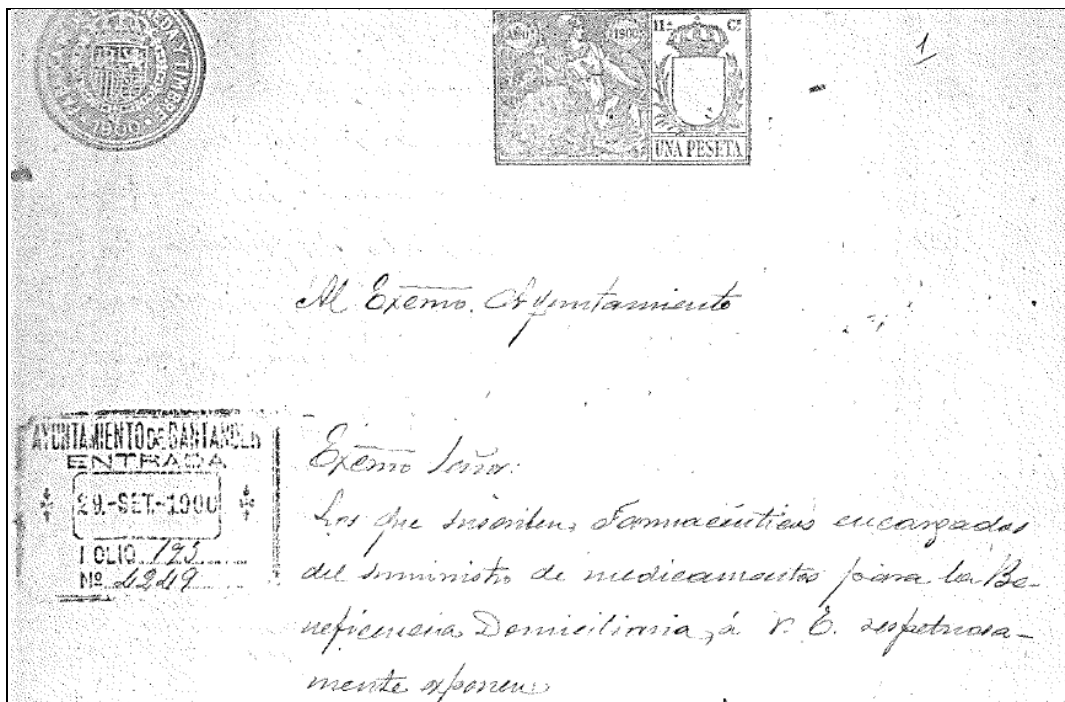 MONEDA Y TIMBRE
1900
AÑO 1900
11ª Cª
UNA PESETA
1
Al Excmo. Ayuntamiento
AYUNTAMIENTO DE SANTANDER
ENTRADA
29.-SET.-1900
FOLIO 193
Nº 4249
Excmo Señor:
Los que suscriben, Farmacéuticos encargados
del suministro de medicamentos para la Be-
neficencia Domiciliaria, á V. E. respetuosa-
mente exponen: